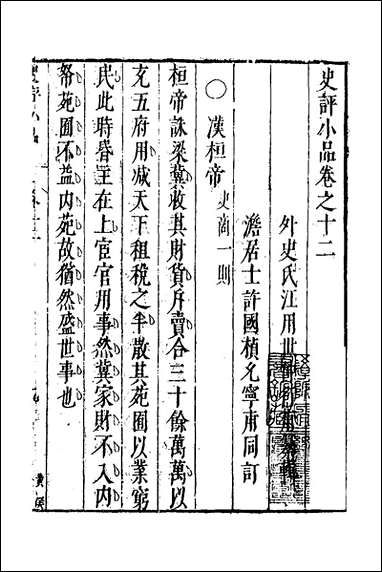 史評小品卷之十二
外史氏江用世
澹居士許國楨允寧甫同訂
○漢桓帝 史商一則
桓帝誅梁冀收其財貨斥賣合三十餘萬萬以
充五府用減天下租稅之半散其苑囿以業窮
民此時昏主在上宦官用事然冀家財不入內
帑苑囿不益內苑故猶然盛世事也